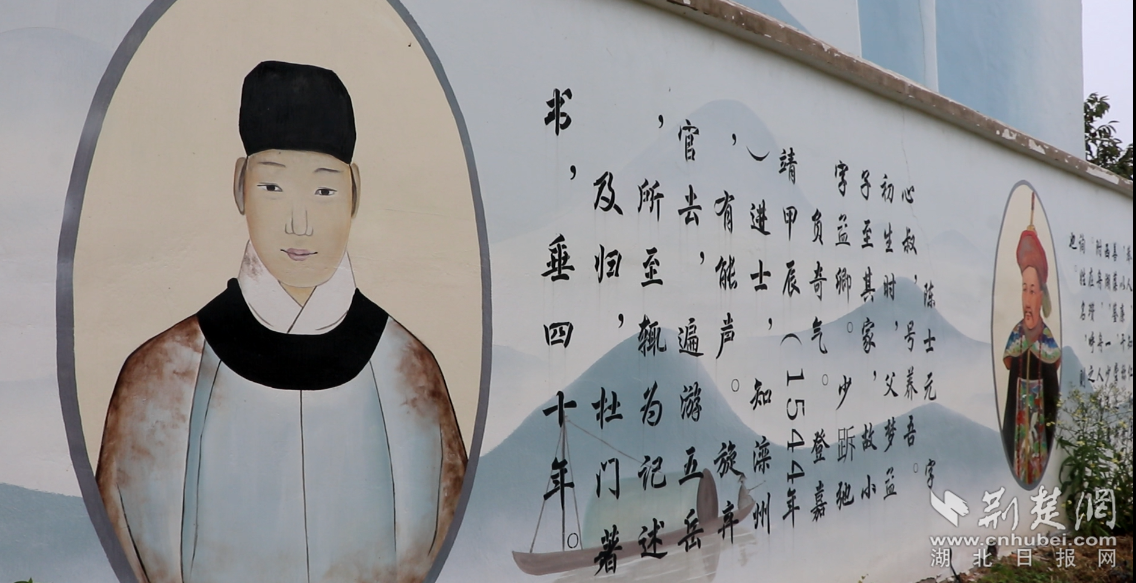 陈士元，字
心叔，号养吾。
初生时，父梦孟
子至其家，故小
字孟卿。少跅弛
负奇气。登嘉
靖甲辰（1544年
）进士，知滦州
，有能声。旋弃
官去，遍游五岳
，所至辄为记述
及归，杜门著
书，垂四十年。
荆楚網
www.cnhubei.com
湖北日报网